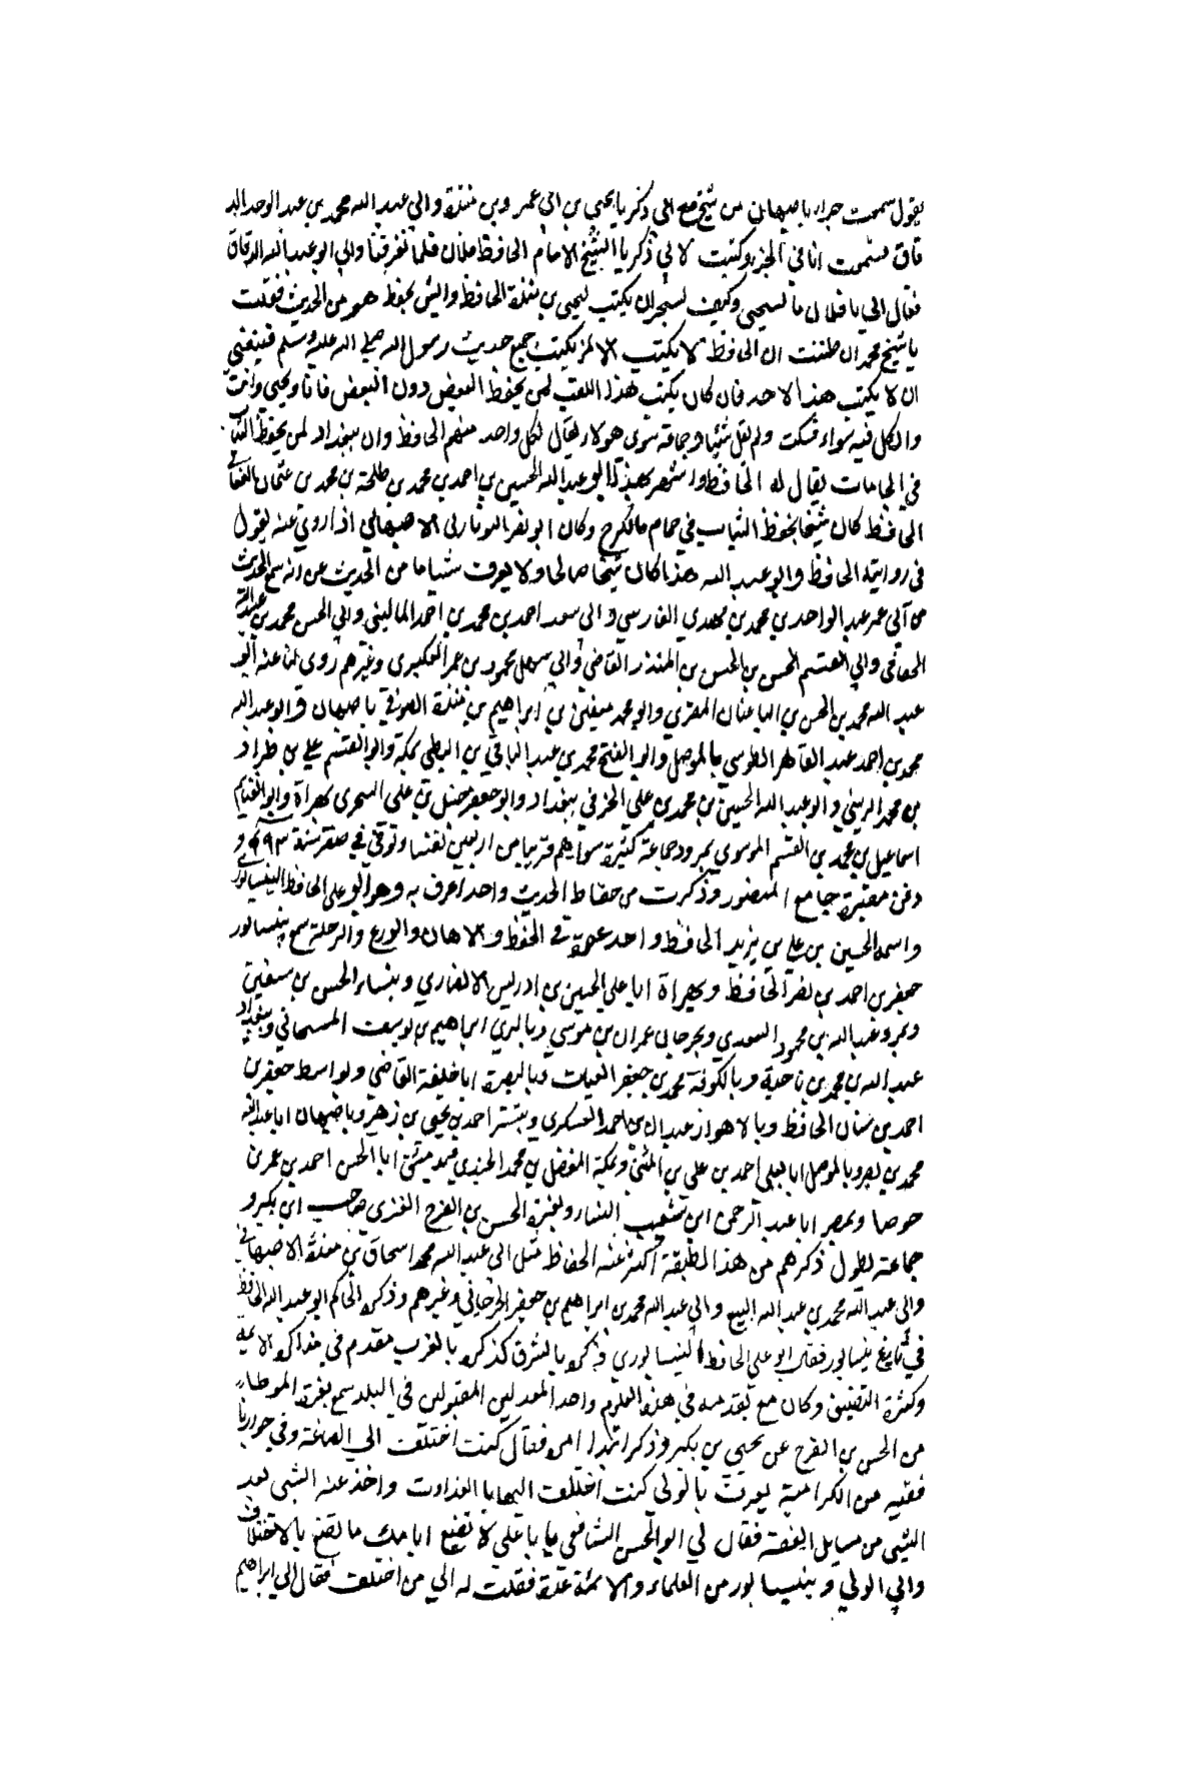 يقول سمعت جزا باصبهان من شيخ مع ابي زكريا يحيي بن ابي عمرو بن مندة وابي عبد الله محمد بن عبد الواحد الد
قاق سمعت انا في الجزو كتبت لابي زكريا الشيخ الامام الحافظ فلان فلما تفرقنا وابي ابو عبد الله الدقاق
فقال الي يا فلان ما تستحيي وكيف تستجيز ان يكتب ليحيي بن مندة الحافظ وايش يحفظ هو من الحديث فقلت
يا شيخ محمد ان ظننت ان الحافظ لا يكتب الا لمن يكتب جميع حديث رسول الله صلي الله عليه وسلم فينبغي
ان لا يكتب هذا لاحد فان كان يكتب هذا اللقب لمن يحفظ البعض دون البعض فانا ويحيي وانت
والكل فيه سواء فسكت ولم يقل شيئا وجماعة سوي هولاء يقال لكل واحد منهم الحافظ وان ببغداد لمن يحفظ الثياب
في الحمامات يقال له الحافظ واشتهر بهذا ابو عبد الله الحسين بن احمد بن محمد بن طلحة بن محمد بن عثمان النعالي
الحافظ كان شيخا يحفظ الثياب في حمام بالكرخ وكان ابو نصر اليونارتي الاصبهاني اذا روي عنه يقول
في روايته الحافظ وابو عبد الله هذا كان شيخا صالحا ولا يعرف شيئا ما من الحديث غير انه سمع الحديث
من ابي عمر عبد الواحد بن محمد بن مهدي الفارسي وابي سعد احمد بن محمد بن احمد الماليني وابي الحسن محمد بن عبيد الله
الحنائي وابي القسم الحسن بن الحسن بن المنذر القاضي وابي سهل محمود بن عمر العكبري وغيرهم روي لنا عنه ابو
عبد الله محمد بن الحسن بن الباغبان المقري وابو محمد سفين بن ابراهيم بن مندة الصوفي باصبهان وابو عبد الله
محمد بن احمد عبد القاهر الطوسي بالموصل وابو الفتح محمد بن عبد الباقي بن البطي بمكة وابو القسم علي بن طراد
بن محمد الزينبي وابو عبد الله الحسين بن محمد بن علي الخرفي ببغداد وابو جعفر حنبل بن علي السجزي بهراة وابو الغنايم
اسماعيل بن محمد بن القسم الموسوي بمرو وجماعة كثيرة سواهم قريبا من اربعين نفسا وتوفي في صفر سنة ٤٩٣ و
دفن مقبرة جامع المنصور وذكرت من حفاظ الحديث واحدا عرف به وهو ابو علي الحافظ النيسابوري
واسمه الحسين بن علي بن يزيد الحافظ واحد عصره في الحفظ والاتقان والورع والرحلة سمع بنيسابور
جعفر بن احمد بن نصر الحافظ وبهراة ابا علي الحسين بن ادريس الانصاري وبنسا الحسن بن سفين
وبمرو عبد الله بن محمود السعدي وبجرجان عمران بن موسي وبالري ابراهيم بن يوسف الهسنجاني وببغداد
عبد الله بن محمد بن ناجية وبالكوفة محمد بن جعفر القتات وبالبصرة ابا خليفة القاضي وبواسط جعفر بن
احمد بن سنان الحافظ وبالاهواز عبدان بن احمد العسكري وبتستر احمد بن يحيي بن زهير وباصبهان ابا عبد الله
محمد بن نصير وبالموصل ابا يعلي احمد بن علي بن المثني وبمكة المفضل بن محمد الجندي وبدمشق ابا الحسن احمد بن عمر بن
جوصا وبمصر ابا عبد الرحمن ابن شعيب النساء وبغزة الحسن بن الفرج الغزي صاحب ابن بكير و
جماعة يطول ذكرهم من هذا الطبقة اكثر عنه الحفاظ مثل ابي عبد الله محمد اسحاق بن مندة الاصبهاني
وابي عبد الله محمد بن عبد الله البيع وابي عبد الله محمد بن ابراهيم بن جعفر الجرجاني وغيرهم وذكره الحاكم ابو عبد الله الحافظ
في تاريخ نيسابور فقال ابو علي الحافظ النيسابوري ذكره بالشرق كذكره بالغرب مقدم في مذاكره الايمة
وكثرة التصنيف وكان مع تقدمه في هذه العلوم واحد المعدلين المقبولين في البلد سمع بغزة الموطا
من الحسن بن الفرج عن يحيي بن بكير وذكر ابتداء امره فقال كنت اختلف الي الصاغة وفي جوارنا
فقيه من الكرامية يعرف بالولي كنت اختلف اليه بالغدوات واخذ عنه الشي بعد
الشي من مسايل الفقه فقال لي ابو الحسن الشافعي يا با علي لا تضيع ايامك ما تصنع بالاختلاف
والي الولي وبنيسابور من العلماء والايمة عدة فقلت له الي من اختلف فقال الي ابراهيم